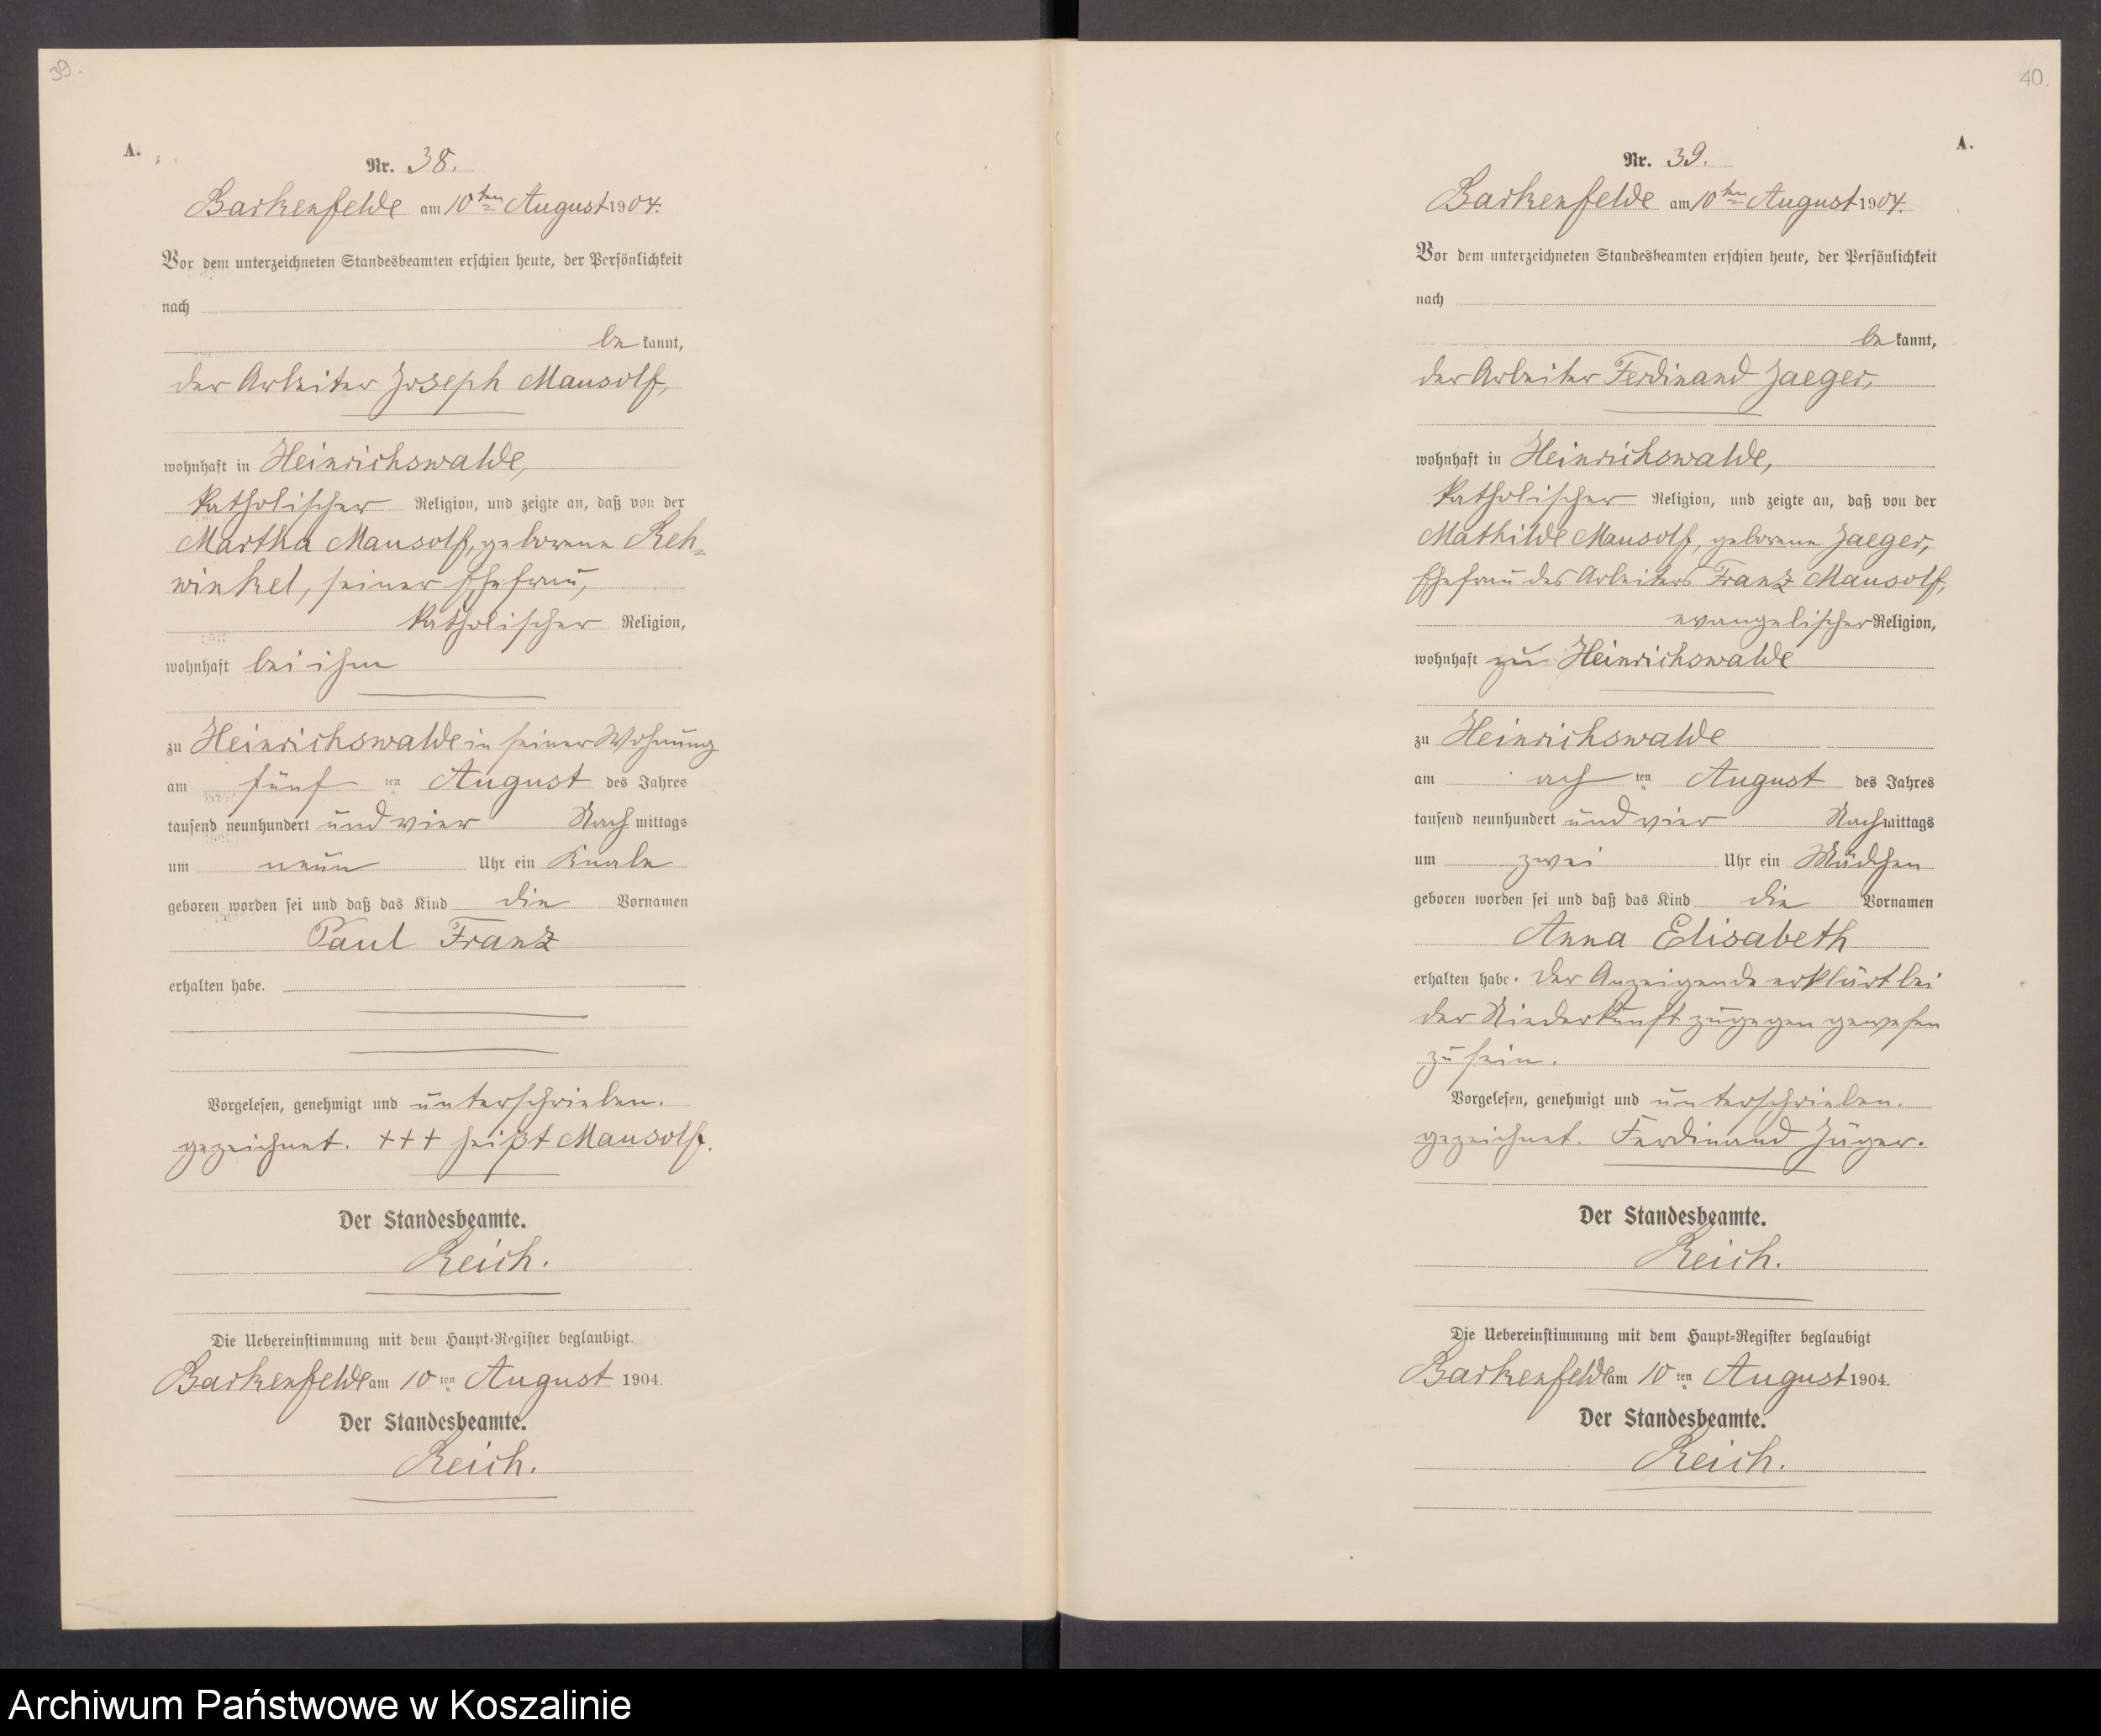 39.
A.
Nr. 38.
Barkenfelde am 10ten August 1904.
Vor dem unterzeichneten Standesbeamten erschien heute, der Persönlichkeit
nach
bekannt,
der Arbeiter Joseph Mausolf,
wohnhaft in Heinrichswalde,
katholischer Religion, und zeigte an, daß von der
Martha Mausolf, geborene Reh=
winkel, seiner Ehefrau,
katholischer Religion,
wohnhaft bei ihm
zu Heinrichswalde in seiner Wohnung
am fünften August des Jahres
tausend neunhundert und vier Nachmittags
um neun Uhr ein Knabe
geboren worden sei und daß das Kind die Vornamen
Paul Franz
erhalten habe.
Vorgelesen, genehmigt und unterschrieben.
gezeichnet. +++ heißt Mausolf.
Der Standesbeamte.
Reich.
Die Uebereinstimmung mit dem Haupt-Register beglaubigt.
Barkenfelde am 10ten August 1904.
Der Standesbeamte.
Reich.
40.
A.
Nr. 39.
Barkenfelde am 10ten August 1904.
Vor dem unterzeichneten Standesbeamten erschien heute, der Persönlichkeit
nach
bekannt,
der Arbeiter Ferdinand Jaeger,
wohnhaft in Heinrichswalde,
katholischer Religion, und zeigte an, daß von der
Mathilde Mausolf, geborene Jaeger,
Ehefrau des Arbeiters Franz Mausolf,
evangelischer Religion,
wohnhaft zu Heinrichswalde
zu Heinrichswalde
am achten August des Jahres
tausend neunhundert und vier Nachmittags
um zwei Uhr ein Mädchen
geboren worden sei und daß das Kind die Vornamen
Anna Elisabeth
erhalten habe. Der Anzeigende erklärt bei
der Niederkunft zugegen gewesen
zu sein.
Vorgelesen, genehmigt und unterschrieben.
gezeichnet. Ferdinand Jäger.
Der Standesbeamte.
Reich.
Die Uebereinstimmung mit dem Haupt-Register beglaubigt
Barkenfelde am 10ten August 1904.
Der Standesbeamte.
Reich.
Archiwum Państwowe w Koszalinie